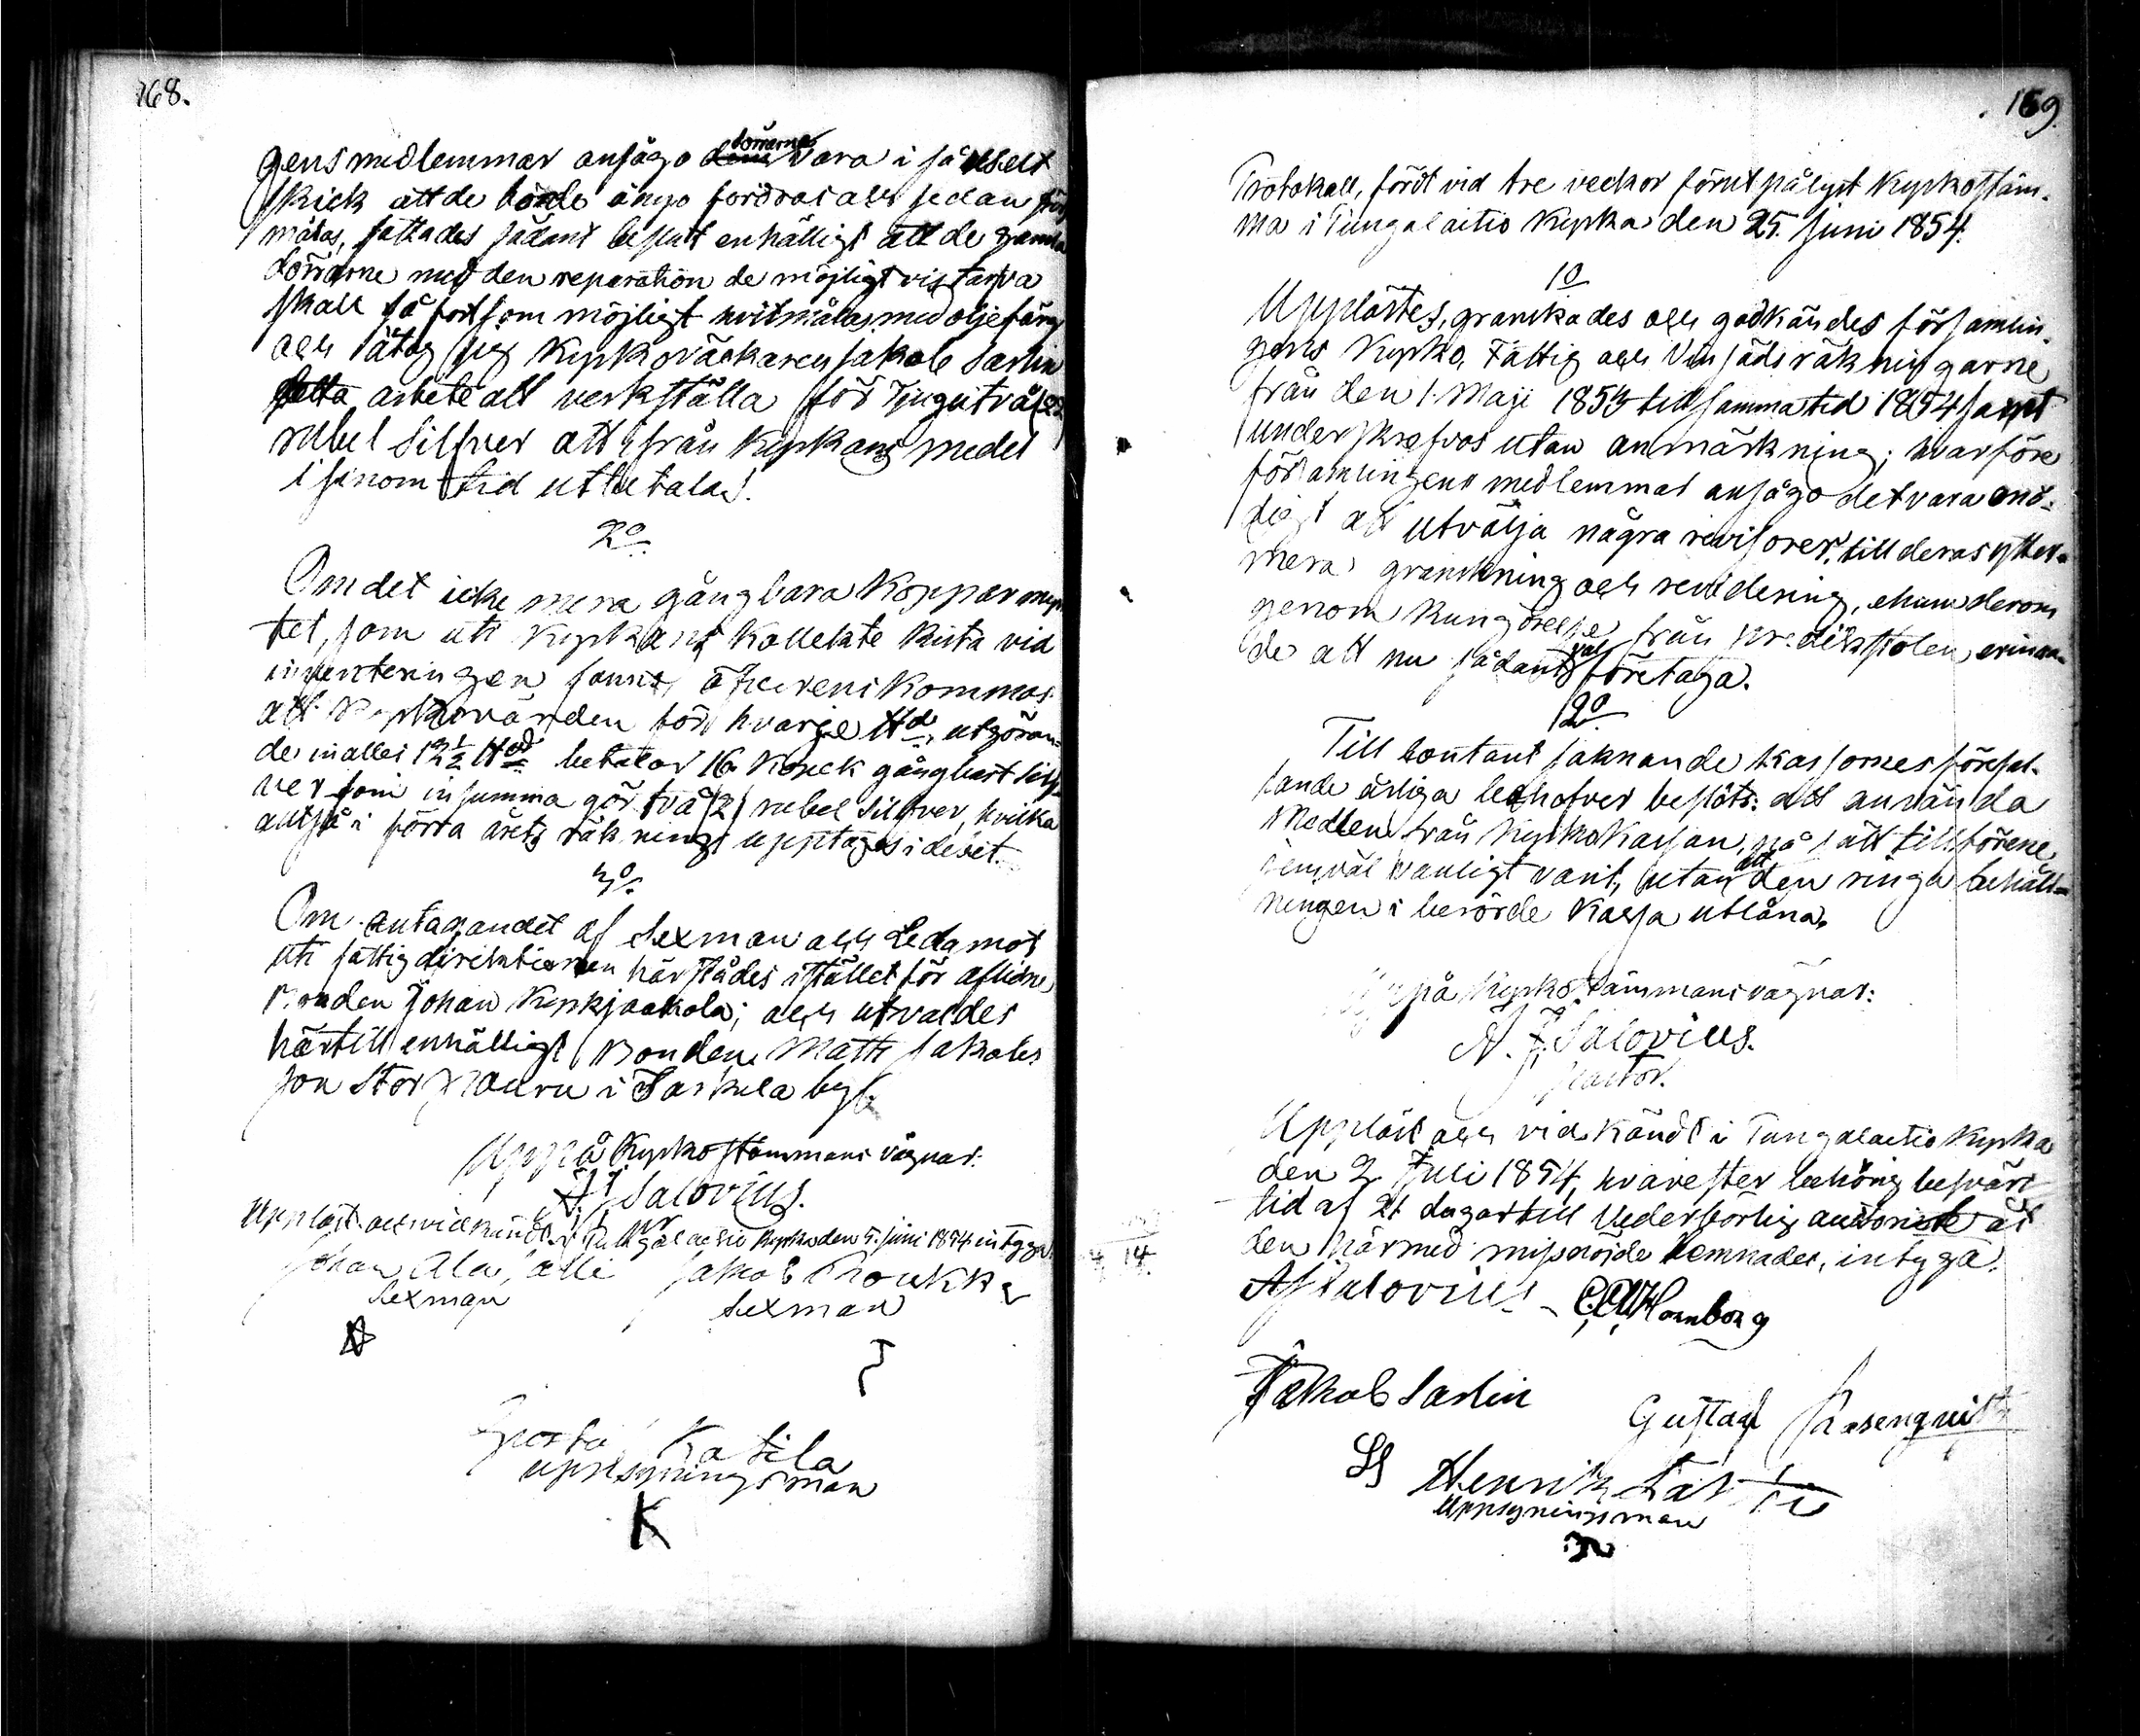 168.
gens medlemmar ansågo dem dörrarne vara i så uselt
skick att de borde ånyo fordras och sedan för
målas, fattades sådant beslut enhälligt att de gamla
dörrarne med den reparation de möjligtvis tarfva
skall så fort som möjligt hvitmålas med oljefärg
och åtog sig Kyrkoväckaren Jakob Sarlin
detta arbete att verkställa för Tjugutvå (22)
rubel Silfver att från Kyrkans medel
i sinom tid utbetalas.
2o
Om det icke mera gångbara Kopparmyn
tet, som uti Kyrkans Kollekte kista vid
inventeringen fanns, öfverenskommos
att Kyrkovärden för hvarje ℔d, utgöran-
de inalles 12½ ℔d betalar 16 Kopek gångbart Silf-
ver som in summa gör två (2) rubel Silfver, hvilka
altså i förra årets räkning upptages i debet.
3o
Om antagandet af Sexman och Ledamot
uti fattigdirektionen härstädes istället för aflidne
Bonden Johan Kyrkjaakola; och utvaldes
härtill enhälligt Bonden Matts Jakobs
son Storpouru i Saskela by.
Uppå Kyrkostämmans vägnar:
A. J. Salovius.
Uppläst och vidkändt i Tungalaitio Kyrka den 5. Juni 1854 intyga:
Johan Ala Jakob Proukka
Sexman Sexman
Gusta Katila
uppsyningsman
K
169.
Protokoll, fördt vid tre veckor förut pålyst Kyrkostäm-
ma i Tungalaitio Kyrka den 25. Juni 1854.
1o
Upplästes, granskades och godkändes församlin-
gens Kyrko, Fattig och Vinsäds räkningarne
från den 1. Maji 1853 till samma tid 1854 samt
underskrefvos utan anmärkning; hvarföre
församlingens medlemmar ansågo det vara onö-
digt att utvälja några revisorer till deras ytter-
mera granskning och revidering, ehuru derom
genom kungörelse från predikstolen, erinra-
de att nu sådant val företaga.
2o
Till contant saknande Kassornes förefal-
lande årliga behofver beslöts: att använda
Medlen från KyrkoKassan, på sätt tillförene
jemväl vanligt varit, utan att den ringa behåll-
ningen i berörde Kassa utlåna.
Uppå Kyrkostämmans vägnar:
A. J. Salovius.
pastor.
Uppläst och vidkändt i Tungalaitio Kyrka
den 2 Juli 1854, hvarefter behörig besvärs
tid af 21 dagar till Vederbörlig auktoritet åt
den härmed missnöjde lemnades, intyga.
14
AJSalovius C.C.W.Homborg
Jakob Sarlin
Gustaf Rosenqvist
Henrik
Uppsyningsman